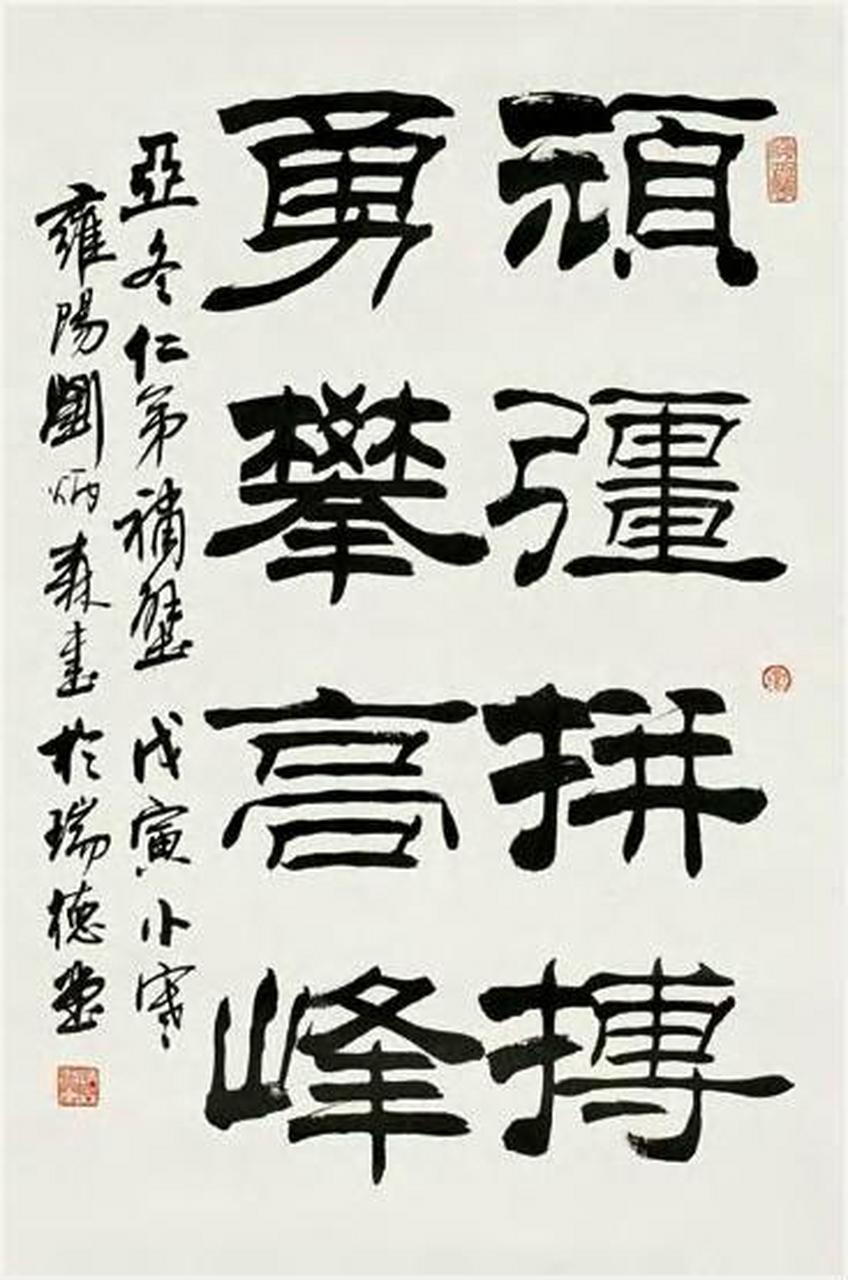 頑彊拼搏
勇攀高峰
亞冬仁弟補壁 戊寅小寒
雍陽劉炳森書於瑞德堂